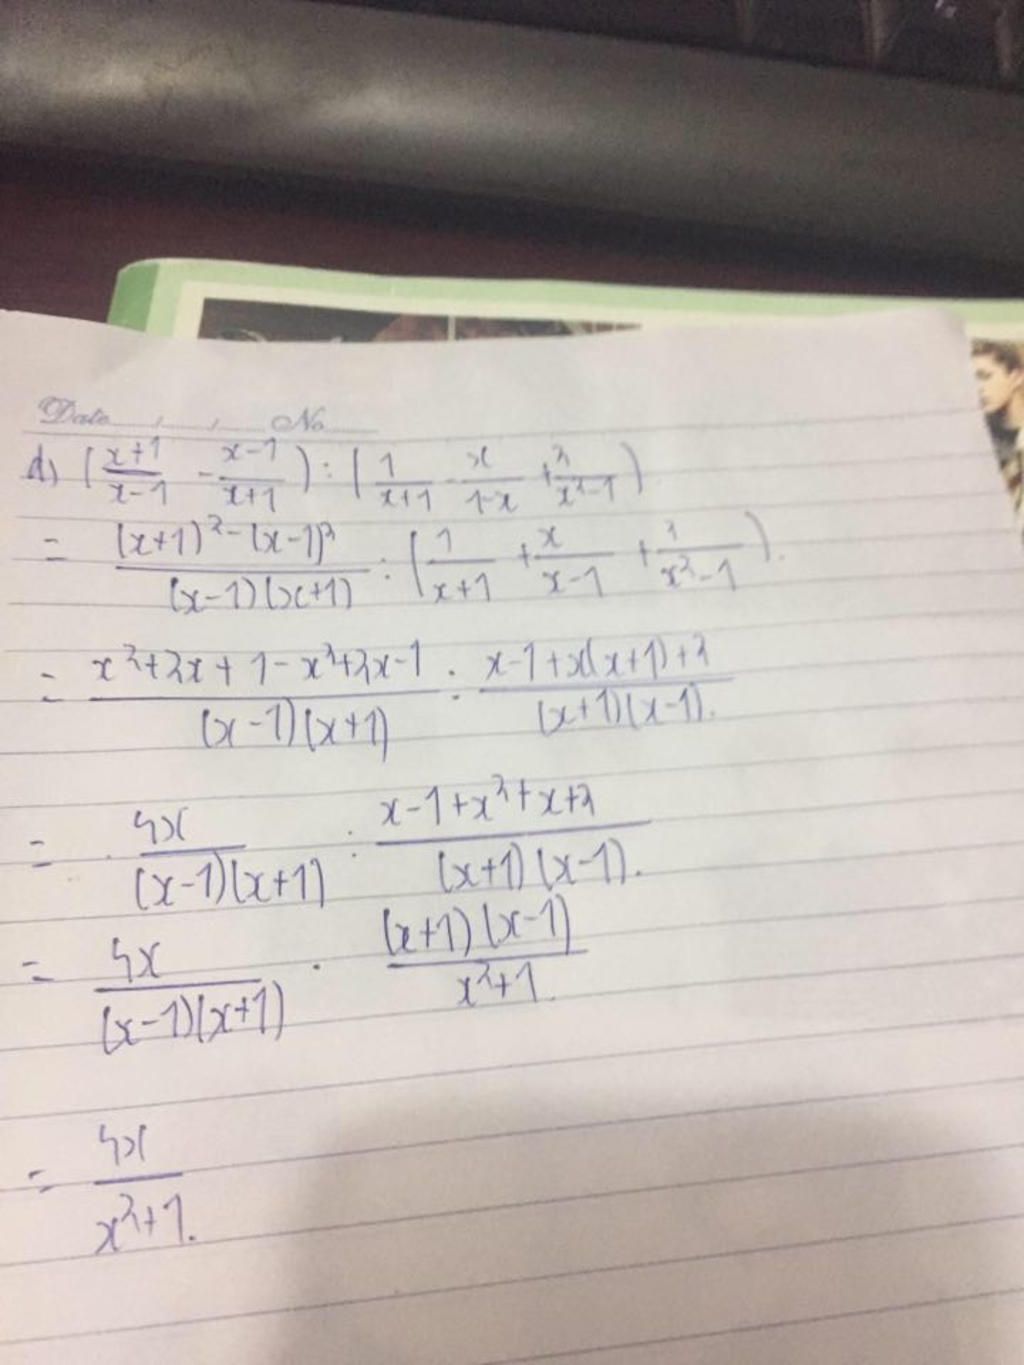 Date , , No
d) (x+1/x-1 - x-1/x+1) : (1/x+1 - x/1-x + 2/x²-1)
= (x+1)²-(x-1)²/(x-1)(x+1) : (1/x+1 + x/x-1 + 2/x²-1).
= x²+2x+1-x²+2x-1/(x-1)(x+1) : x-1+x(x+1)+2/(x+1)(x-1).
= 4x/(x-1)(x+1) : x-1+x²+x+2/(x+1)(x-1).
= 4x/(x-1)(x+1) . (x+1)(x-1)/x²+1.
= 4x/x²+1.